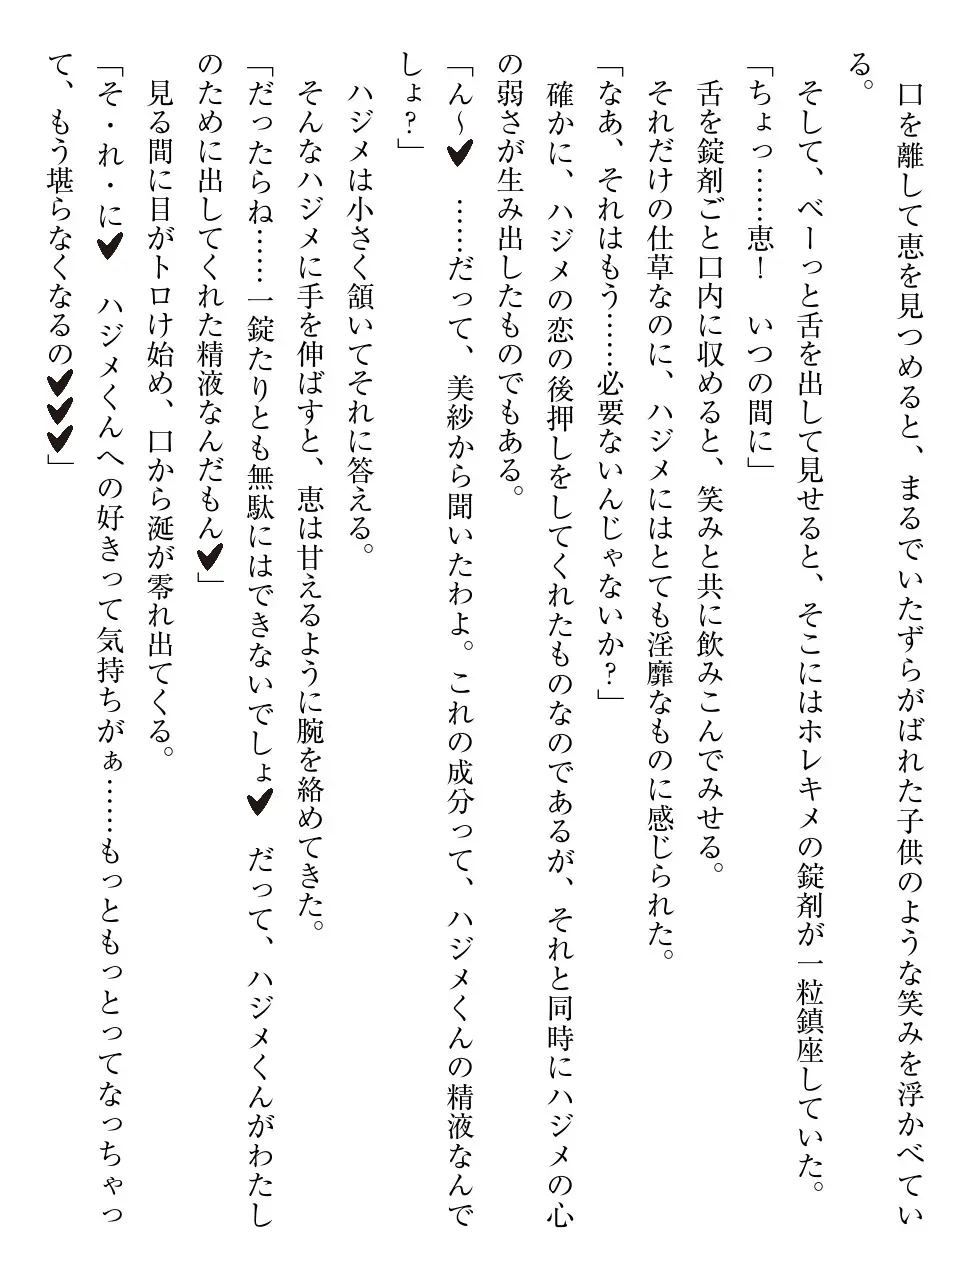 口を離して恵を見つめると、まるでいたずらがばれた子供のような笑みを浮かべてい
る。
　そして、べーっと舌を出して見せると、そこにはホレキメの錠剤が一粒鎮座していた。
「ちょっ……恵！　いつの間に」
　舌を錠剤ごと口内に収めると、笑みと共に飲みこんでみせる。
　それだけの仕草なのに、ハジメにはとても淫靡なものに感じられた。
「なあ、それはもう……必要ないんじゃないか？」
　確かに、ハジメの恋の後押しをしてくれたものなのであるが、それと同時にハジメの心
の弱さが生み出したものでもある。
「ん～♥　……だって、美紗から聞いたわよ。これの成分って、ハジメくんの精液なんで
しょ？」
　ハジメは小さく頷いてそれに答える。
　そんなハジメに手を伸ばすと、恵は甘えるように腕を絡めてきた。
「だったらね……一錠たりとも無駄にはできないでしょ♥　だって、ハジメくんがわたし
のために出してくれた精液なんだもん♥」
　見る間に目がトロけ始め、口から涎が零れ出てくる。
「そ・れ・に♥　ハジメくんへの好きって気持ちがぁ……もっともっとってなっちゃっ
て、もう堪らなくなるの♥♥♥」